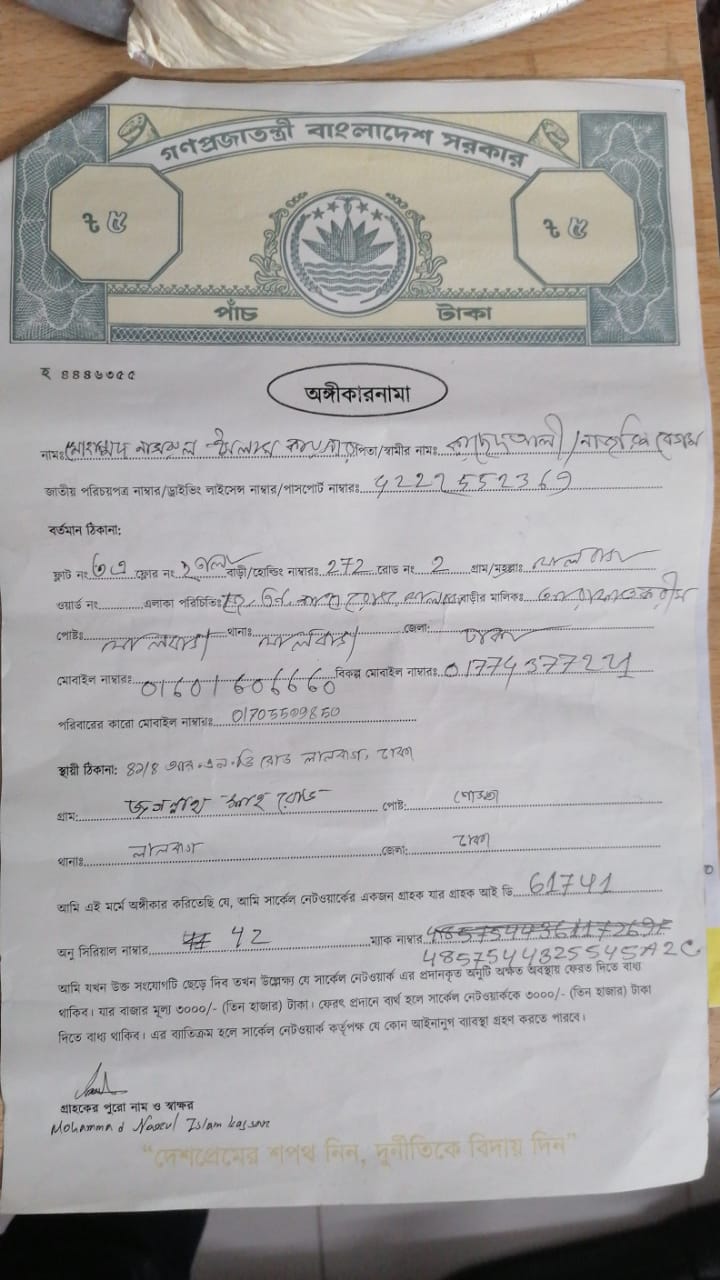 গণপ্রজাতন্ত্রী বাংলাদেশ সরকার
৳ ৫ ৳ ৫
পাঁচ টাকা
হ ৪৪৪৬৩৫৫
অঙ্গীকারনামা
নামঃ মোহাম্মদ নাজমুল ইসলাম কাওসার পিতা/স্বামীর নামঃ / বেগম
জাতীয় পরিচয়পত্র নাম্বার/ড্রাইভিং লাইসেন্স নাম্বার/পাসপোর্ট নাম্বারঃ 4222552369
বর্তমান ঠিকানা:
ফ্লাট নং ফ্লোর নং ২ তলা বাড়ী/হোল্ডিং নাম্বারঃ 272 রোড নং 2 গ্রাম/মহল্লাঃ লালবাগ
ওয়ার্ড নং এলাকা পরিচিতিঃ বাড়ীর মালিকঃ
পোষ্টঃ লালবাগ থানাঃ লালবাগ জেলা: ঢাকা
মোবাইল নাম্বারঃ 01601606660 বিকল্প মোবাইল নাম্বারঃ 01774377221
পরিবারের কারো মোবাইল নাম্বারঃ 01705509850
স্থায়ী ঠিকানা: ৪২/৪ আর.এন.ডি রোড লালবাগ, ঢাকা
গ্রাম: জগন্নাথ সাহ রোড পোষ্ট: পোস্তা
থানাঃ লালবাগ জেলা: ঢাকা
আমি এই মর্মে অঙ্গীকার করিতেছি যে, আমি সার্কেল নেটওয়ার্কের একজন গ্রাহক যার গ্রাহক আই ডি 61741
অনু সিরিয়াল নাম্বার 42 ম্যাক নাম্বার
4857544325545A2C
আমি যখন উক্ত সংযোগটি ছেড়ে দিব তখন উল্লেক্ষ্য যে সার্কেল নেটওয়ার্ক এর প্রদানকৃত অনুটি অক্ষত অবস্থায় ফেরত দিতে বাধ্য
থাকিব। যার বাজার মূল্য ৩০০০/- (তিন হাজার) টাকা। ফেরৎ প্রদানে ব্যর্থ হলে সার্কেল নেটওয়ার্ককে ৩০০০/- (তিন হাজার) টাকা
দিতে বাধ্য থাকিব। এর ব্যাতিক্রম হলে সার্কেল নেটওয়ার্ক কর্তৃপক্ষ যে কোন আইনানুগ ব্যাবস্থা গ্রহণ করতে পারবে।
গ্রাহকের পুরো নাম ও স্বাক্ষর
Mohammad Nazmul Islam kassar
“দেশপ্রেমের শপথ নিন, দুর্নীতিকে বিদায় দিন”